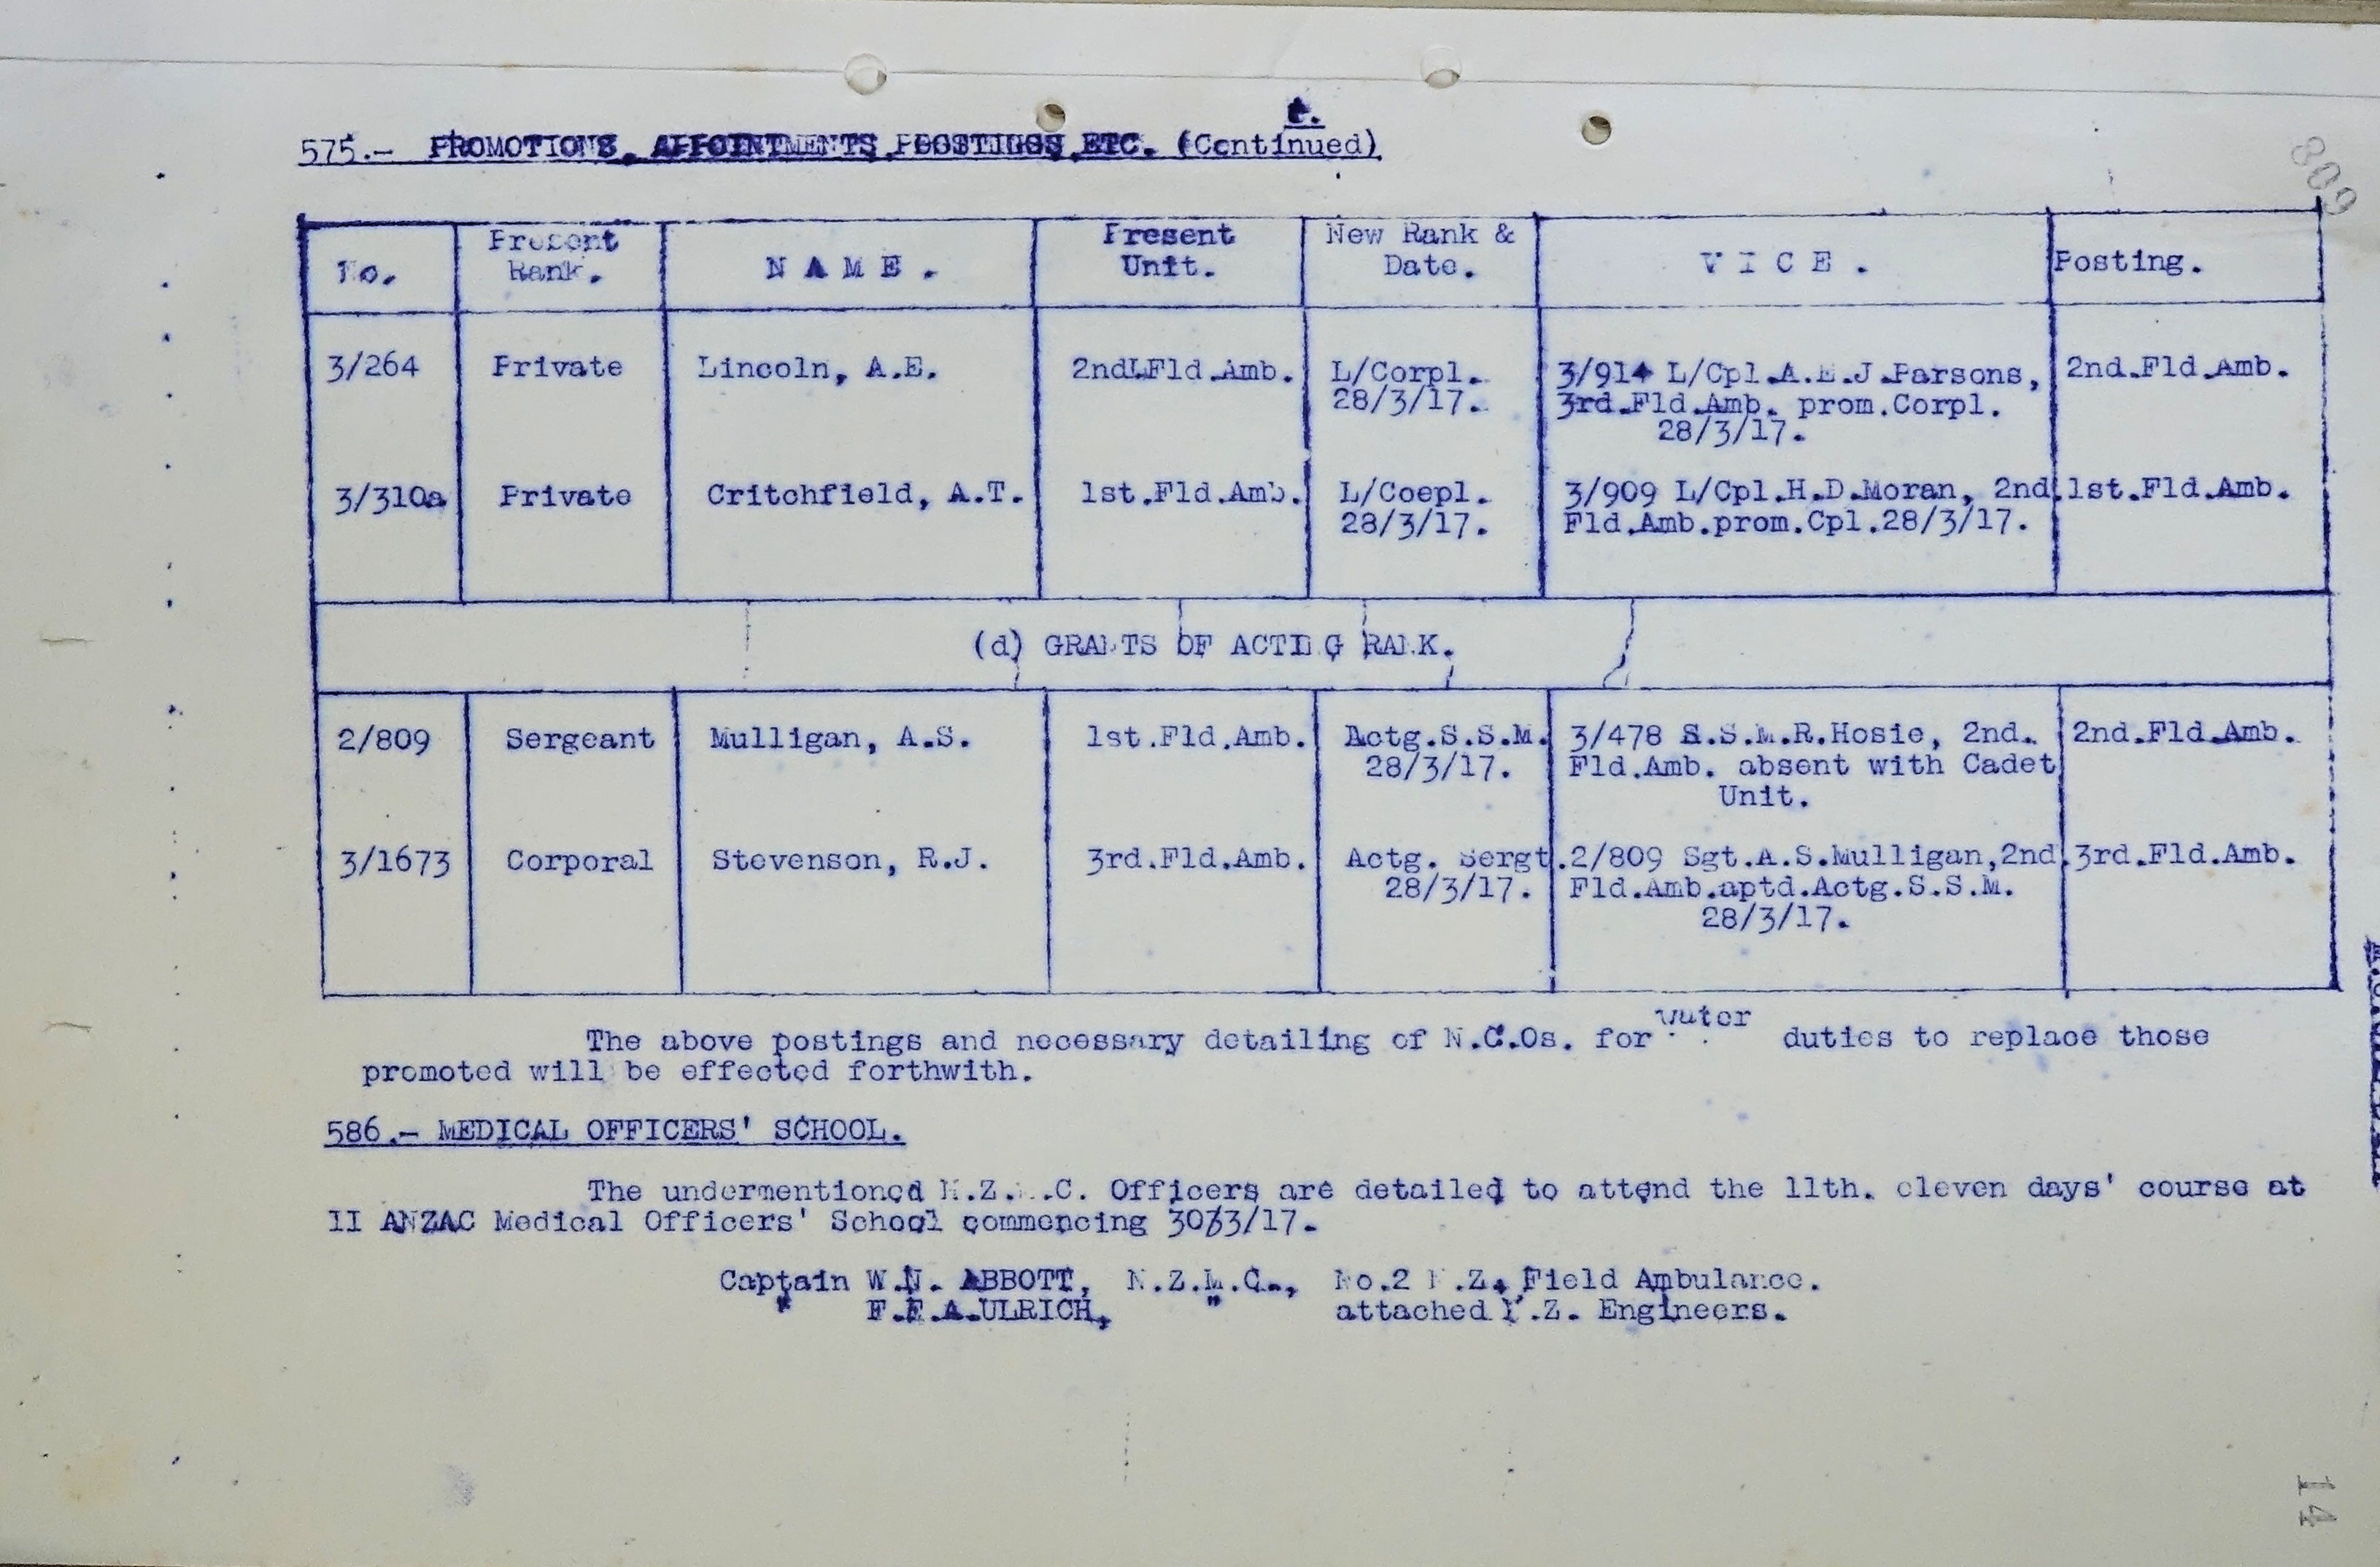 575.- PROMOTIONS, APPOINTMENTS, POSTINGS, ETC. (Continued)
809
No. Present Rank. NAME. Present Unit. New Rank & Date. VICE. Posting.
3/264 Private Lincoln, A.E. 2nd.Fld.Amb. L/Corpl. 3/914 L/Cpl.A.E.J.Parsons, 2nd.Fld.Amb.
28/3/17. 3rd.Fld.Amb. prom.Corpl.
28/3/17.
3/310a Private Critchfield, A.T. 1st.Fld.Amb. L/Coepl. 3/909 L/Cpl.H.D.Moran, 2nd. 1st.Fld.Amb.
28/3/17. Fld.Amb.prom.Cpl.28/3/17.
(d) GRANTS OF ACTING RANK.
2/809 Sergeant Mulligan, A.S. 1st.Fld.Amb. Actg.S.S.M. 3/478 S.S.M.R.Hosie, 2nd. 2nd.Fld.Amb.
28/3/17. Fld.Amb. absent with Cadet
Unit.
3/1673 Corporal Stevenson, R.J. 3rd.Fld.Amb. Actg. Sergt. 2/809 Sgt.A.S.Mulligan,2nd. 3rd.Fld.Amb.
28/3/17. Fld.Amb.aptd.Actg.S.S.M.
28/3/17.
The above postings and necessary detailing of N.C.Os. for water duties to replace those
promoted will be effected forthwith.
586.- MEDICAL OFFICERS' SCHOOL.
The undermentioned N.Z.M.C. Officers are detailed to attend the 11th. eleven days' course at
II ANZAC Medical Officers' School commencing 30/3/17.
Captain W.N. ABBOTT, N.Z.M.C., No.2 N.Z. Field Ambulance.
" F.E.A.ULRICH, " attached N.Z. Engineers.
14